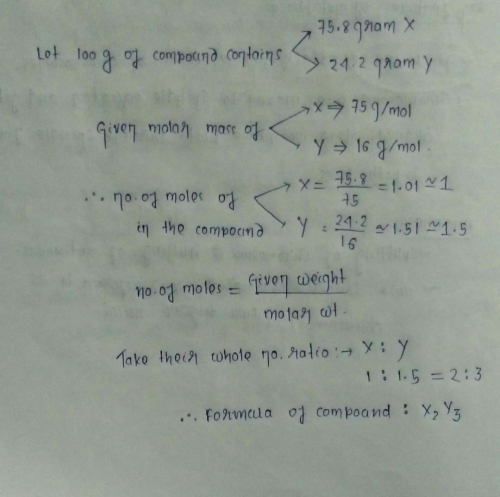 75.8 gram X
Let 100 g of compound contains
24.2 gram Y
X ⇒ 75 g/mol
Given molar mass of
Y ⇒ 16 g/mol.
∴ no. of moles of X = 75.8/75 = 1.01 ≃ 1
in the compound Y = 24.2/16 ≃ 1.51 ≃ 1.5
no. of moles = Given weight/molar wt.
Take their whole no. ratio :→ X : Y
1 : 1.5 = 2 : 3
∴ Formula of compound : X₂Y₃